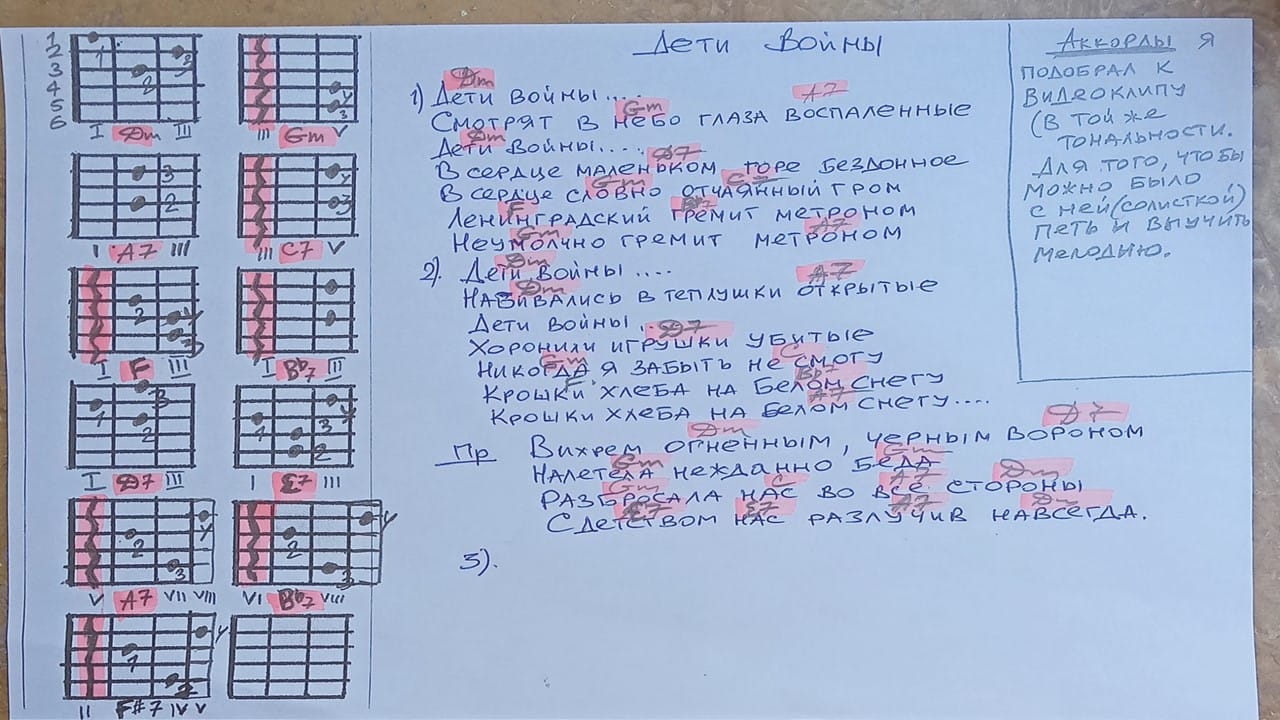 1
2
3
4
5
6
1
2
3
I Dm III
У
3
III Gm V
3
2
I A7 III
У
3
III C7 V
2
У
3
I F III
I Bb7 III
3
1
2
I D7 III
У
3
1
2
I E7 III
У
2
3
V A7 VII VIII
У
2
3
VI Bb7 VIII
У
1
II F#7 IV V
Дети Войны
Dm
1) Дети войны....
Gm A7
Смотрят в небо глаза воспаленные
Dm
Дети войны....
D7
В сердце маленьком горе бездонное
Gm C7
В сердце словно отчаянный гром
F Bb7
Ленинградский гремит метроном
Gm A7
Неумолчно гремит метроном
Dm
2). Дети войны....
Dm A7
Набивались в теплушки открытые
Дети войны...
D7
Хоронили игрушки убитые
Gm C
Никогда я забыть не смогу
F Bb7
Крошки хлеба на белом снегу
A7
Крошки хлеба на белом снегу....
Dm D7
Пр Вихрем огненным, черным вороном
Gm Gm
Налетела нежданно беда
Gm C A7 Dm
Разбросала нас во все стороны
E7 E7 A7 Dm
С детством нас разлучив навсегда.
3).
Аккорды я
подобрал к
видеоклипу
(в той же
тональности.
Для того, что бы
можно было
с ней (солисткой)
петь и выучить
мелодию.